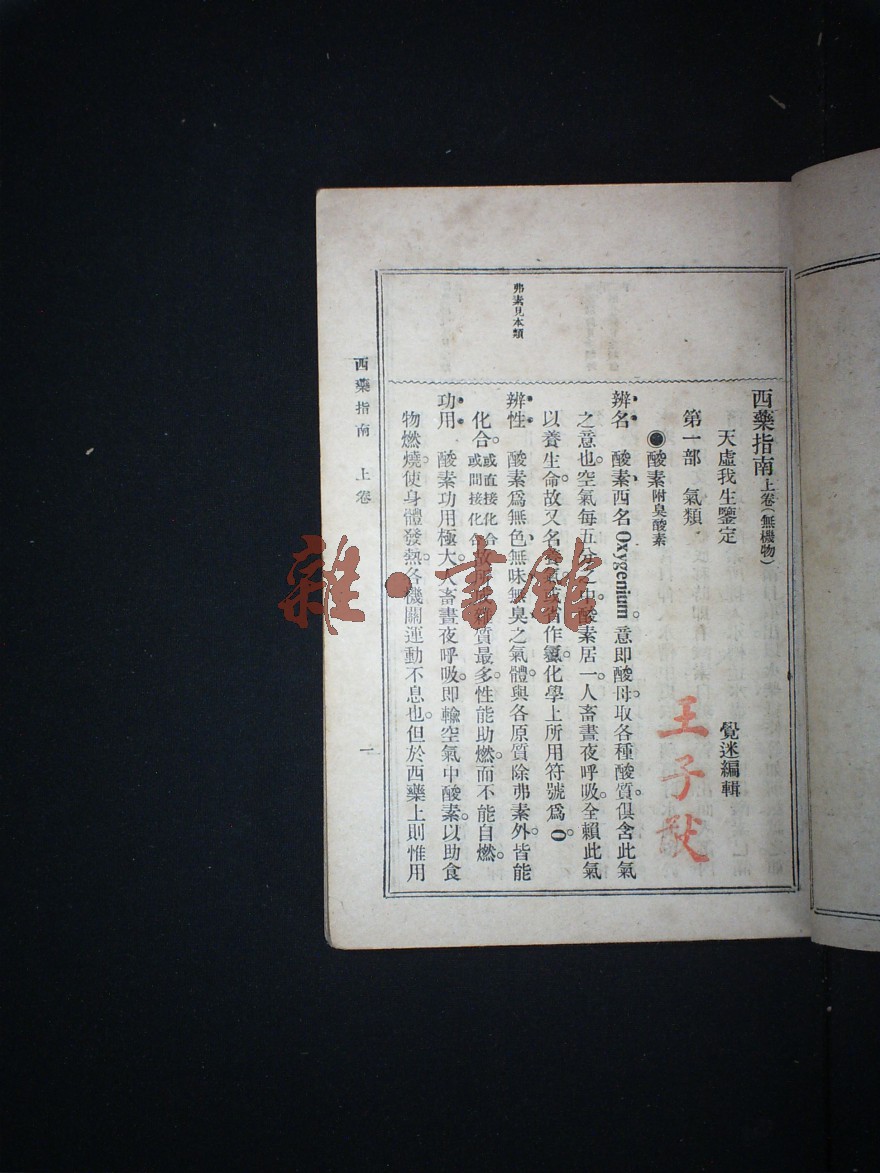 西藥指南上卷（無機物）
天虛我生鑒定　覺迷編輯
王子
第一部　氣類
●酸素附臭酸素
辨名　酸素西名Oxygenium。意即酸母。取各種酸質。俱含此氣
之意也。空氣每五分之中。酸素居一。人畜晝夜呼吸。全賴此氣
以養生命。故又名養氣。或省作氱。化學上所用符號爲O。
弗素見本類
辨性　酸素爲無色無味無臭之氣體。與各原質除弗素外。皆能
化合。或直接化合或間接化合故所成雜質最多。性能助燃。而不能自燃。
功用　酸素功用極大。人畜晝夜呼吸。即輸空氣中酸素。以助食
物燃燒。使身體發熱。各機關運動不息也。但於西藥上則惟用
西藥指南　上卷　一
雜·書館